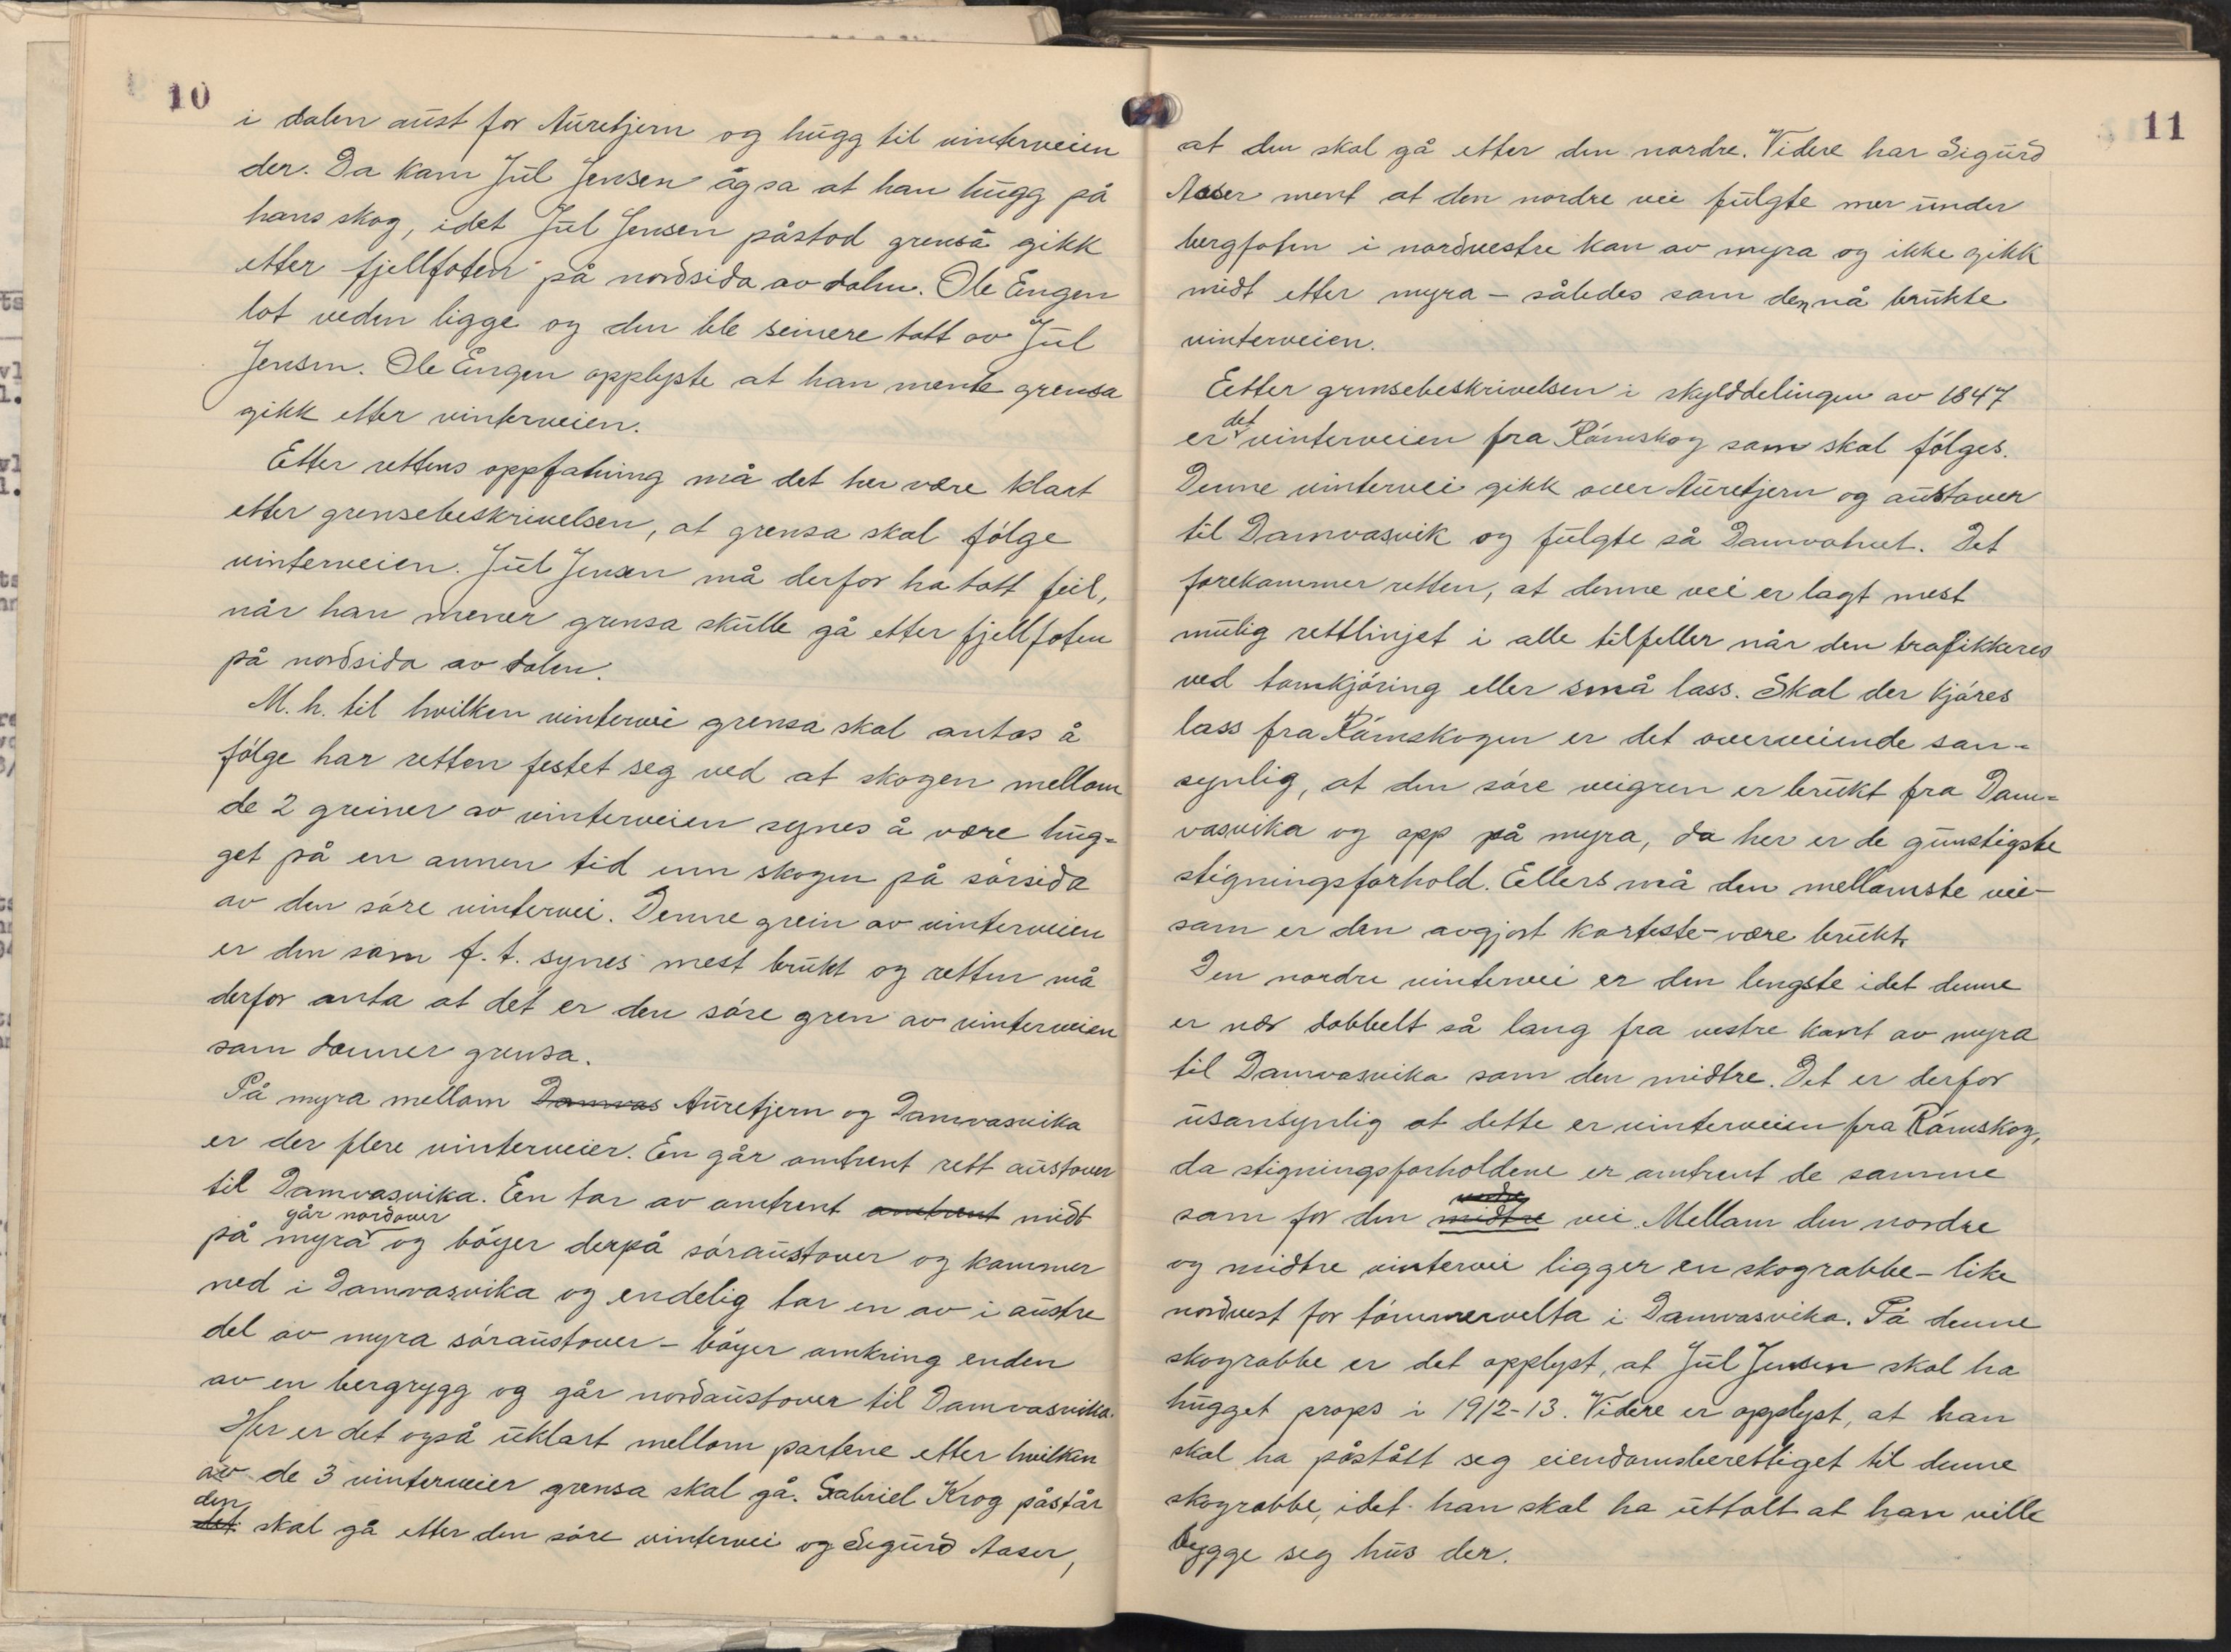 10
i dalen aust for Auretjern og hugg til vinterveien
der. Da kom Jul Jensen åg sa at han hugg på
hans skog, idet Jul Jensen påstod grensa gikk
etter fjellfoten på nordsida av dalen. Ole Engen
lot veden ligge og den ble seinere tatt av Jul
Jensen. Ole Engen opplyste at han mente grensa
gikk etter vinterveien.
Etter rettens oppfatning må det her være klart
etter grensebeskrivelsen, at grensa skal følge
vinterveien. Jul Jensen må derfor ha tatt feil,
når han mener grensa skulle gå etter fjellfoten
på nordsida av dalen.
M. h. til hvilken vintervei grensa skal antas å
følge har retten festet seg ved at skogen mellom
de 2 greiner av vinterveien synes å være hug-
get på en annen tid enn skogen på sørsida
av den søre vintervei. Denne grein av vinterveien
er den som f. t. synes mest brukt og retten må
derfor anta at det er den søre gren av vinterveien
som danner grensa.
På myra mellom Damvas Auretjern og Damvasvika
er der flere vinterveier. En går omtrent rett austover
til Damvasvika. Een tar av omtrent omtrent midt
går nordover
på myra og bøyer derpå søraustover og kommer
ned i Damvasvika og endelig tar en av i austre
del av myra søraustover - bøyer omkring enden
av en bergrygg og går nordaustover til Damvasvika.
Her er det også uklart mellom partene etter hvilken
av de 3 vinterveier grensa skal gå. Gabriel Krog påstår
den
det skal gå etter den søre vintervei og Sigurd Aaser,
11
at den skal gå etter den nordre. Videre har Sigurd
Aaser ment at den nordre vei fulgte mer under
bergfoten i nordvestre kan av myra og ikke gikk
midt etter myra - således som den nå brukte
vinterveien.
Eetter grensebeskrivelsen i skylddelingen av 1847
det
er vinterveien fra Rømskog som skal følges.
Denne vintervei gikk over Auretjern og austover
til Damvasvik og fulgte så Damvatnet. Det
forekommer retten, at denne vei er lagt mest
mulig rettlinjet i alle tilfeller når den trafikkeres
ved tomkjøring eller små lass. Skal der kjøres
lass fra Rømskogen er det overveiende san-
synlig, at den søre veigren er brukt fra Dam-
vasvika og opp på myra, da her er de gunstigste
stigningsforhold. Ellers må den mellomste vei-
som er den avgjort korteste - være brukt.
Den nordre vintervei er den lengste idet denne
er nær dobbelt så lang fra vestre kant av myra
til Damvasvika som den midtre. Det er derfor
usansynlig at dette er vinterveien fra Rømskog,
da stigningsforholdene er omtrent de samme
nordre
som for den midtre vei. Mellom den nordre
og midtre vintervei ligger en skograbbe - like
nordvest for tømmervelta i Damvasvika. På denne
skograbbe er det opplyst, at Jul Jensen skal ha
hugget props i 1912-13. Videre er opplyst, at han
skal ha påstått seg eiendomsberettiget til denne
skograbbe, idet han skal ha uttalt at han ville
bygge seg hus der.